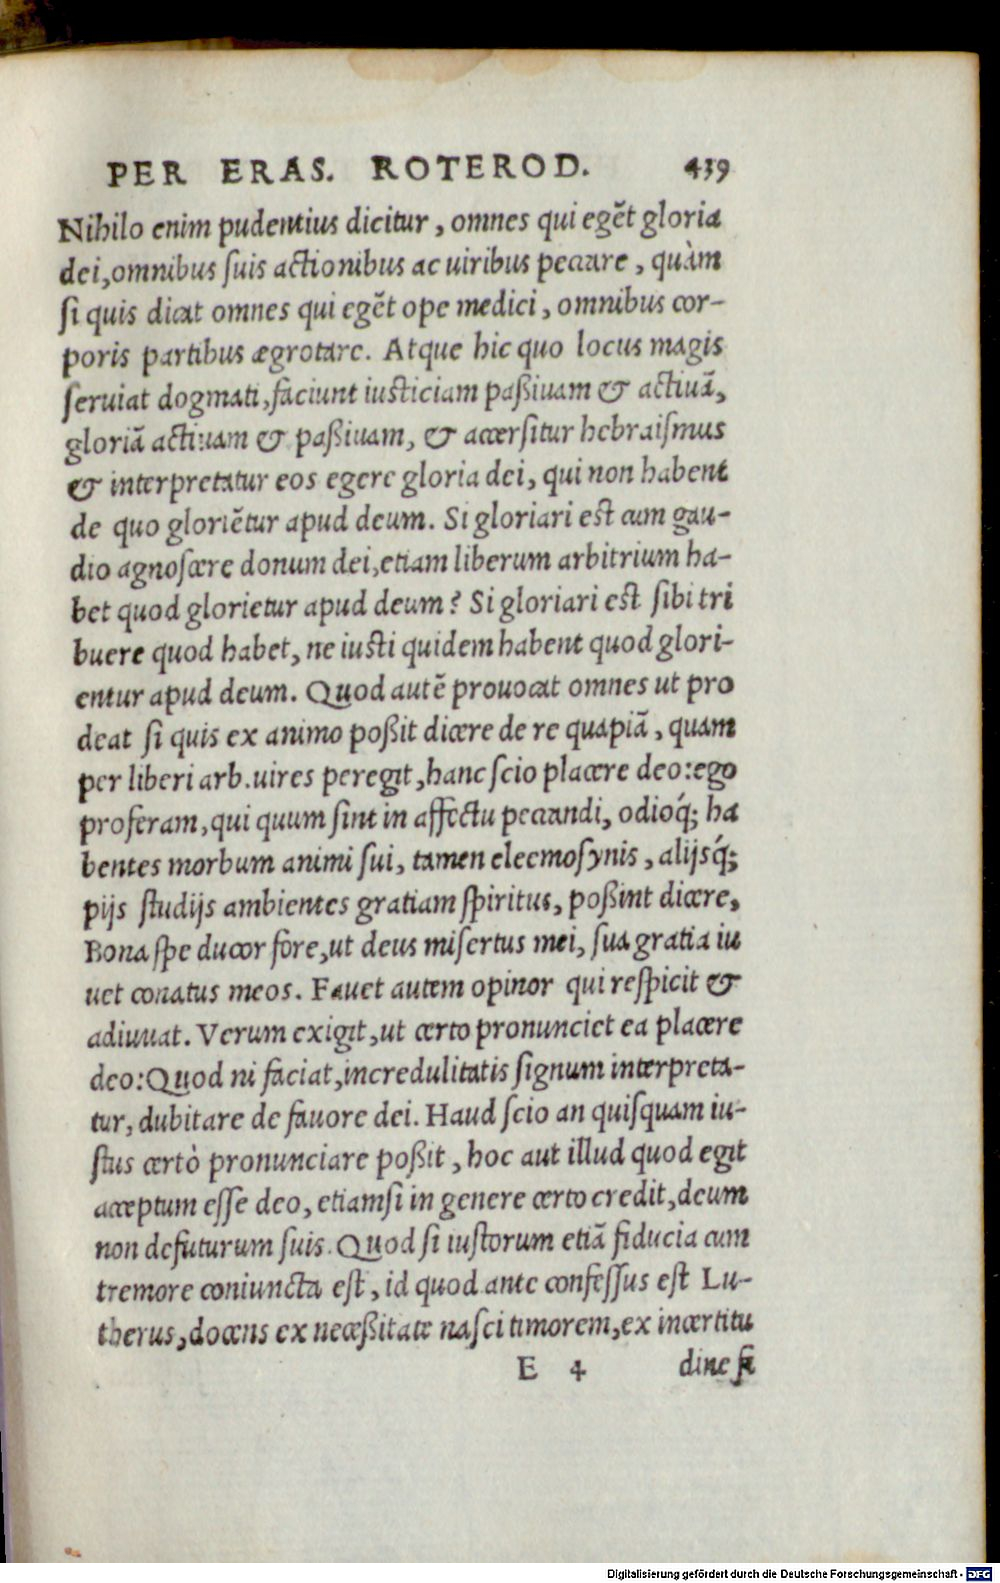 PER ERAS. ROTEROD. 439
Nihilo enim pudentius dicitur, omnes qui egẽt gloria
dei, omnibus suis actionibus ac uiribus peccare, quàm
si quis dicat omnes qui egẽt ope medici, omnibus cor-
poris partibus ægrotare. Atque hic quo locus magis
seruiat dogmati, faciunt iusticiam paßiuam & actiuã,
gloriã actiuam & paßiuam, & accersitur hebraismus
& interpretatur eos egere gloria dei, qui non habent
de quo gloriẽtur apud deum. Si gloriari est cum gau-
dio agnoscere donum dei, etiam liberum arbitrium ha-
bet quod glorietur apud deum? Si gloriari est sibi tri
buere quod habet, ne iusti quidem habent quod glori-
entur apud deum. Quod autẽ prouocat omnes ut pro
deat si quis ex animo poßit dicere de re quapiã, quam
per liberi arb. uires peregit, hanc scio placere deo: ego
proferam, qui quum sint in affectu peccandi, odioq́; ha
bentes morbum animi sui, tamen eleemosynis, alijsq́;
pijs studijs ambientes gratiam spiritus, poßint dicere,
Bona spe ducor fore, ut deus misertus mei, sua gratia iu
uet conatus meos. Fauet autem opinor qui respicit &
adiuuat. Verum exigit, ut certo pronunciet ea placere
deo: Quod ni faciat, incredulitatis signum interpreta-
tur, dubitare de fauore dei. Haud scio an quisquam iu-
stus certò pronunciare poßit, hoc aut illud quod egit
acceptum esse deo, etiamsi in genere certo credit, deum
non defuturum suis. Quod si iustorum etiã fiducia cum
tremore coniuncta est, id quod ante confessus est Lu-
therus, docens ex neceßitate nasci timorem, ex incertitu
E 4 dine fi
Digitalisierung gefördert durch die Deutsche Forschungsgemeinschaft - DFG